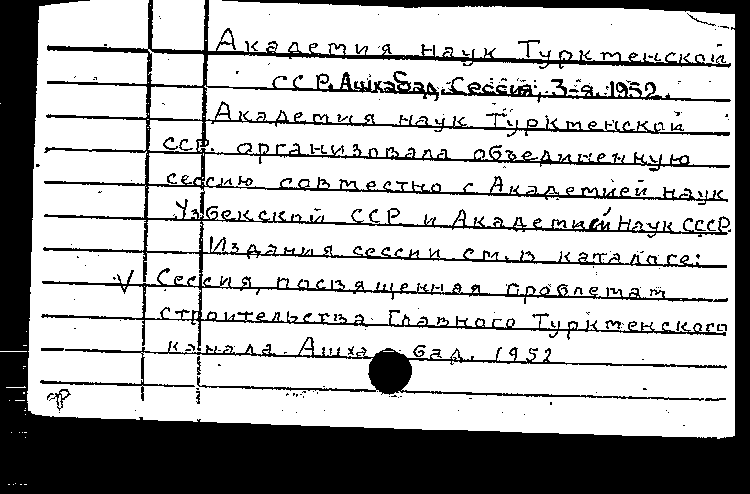 Академия наук Туркменской
ССР. Ашхабад. Сессия, 3-я. 1952.
Академия наук Туркменской
ССР. организовала объединенную
сессию совместно с Академией наук
Узбекской ССР и Академией Наук СССР.
Издания сессии см. в каталоге:
V Сессия, посвященная проблемам
строительства Главного Туркменского
канала. Ашхабад. 1952